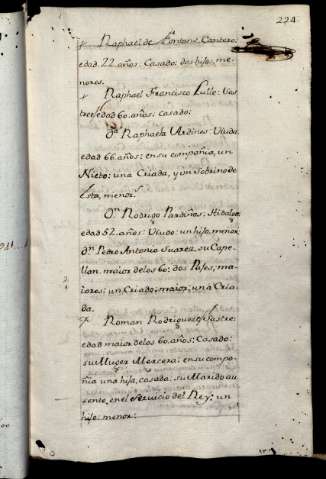 224
Raphael de Fontans, Cantero:
edad. 22. años. Casado: dos hijos, me-
nores.
Raphael Francisco Lulle: Sas
tre: edad 60. años: casado:
Dª. Raphaela Ardines: Viuda.
edad 66. años: en su compañia, un
Nieto: una Criada, y un sobrino de
esta, menor.
Dn. Rodrigo Pardiñas: Hidalgo:
edad 52. años: Viudo: un hijo, menor:
dn. Pedro Antonio Suarez, su Cape-
llan. maior de los 60: dos Pajes, ma-
iores: un Criado, maior, una Cria-
da.
Roman Rodriguez: Sastre:
edad maior de los 60. años: Casado:
su Muger Mercera: en su compa-
ñia una hija, casada: su Marido au
sente, en el servicio del Rey: un
hijo: menor: